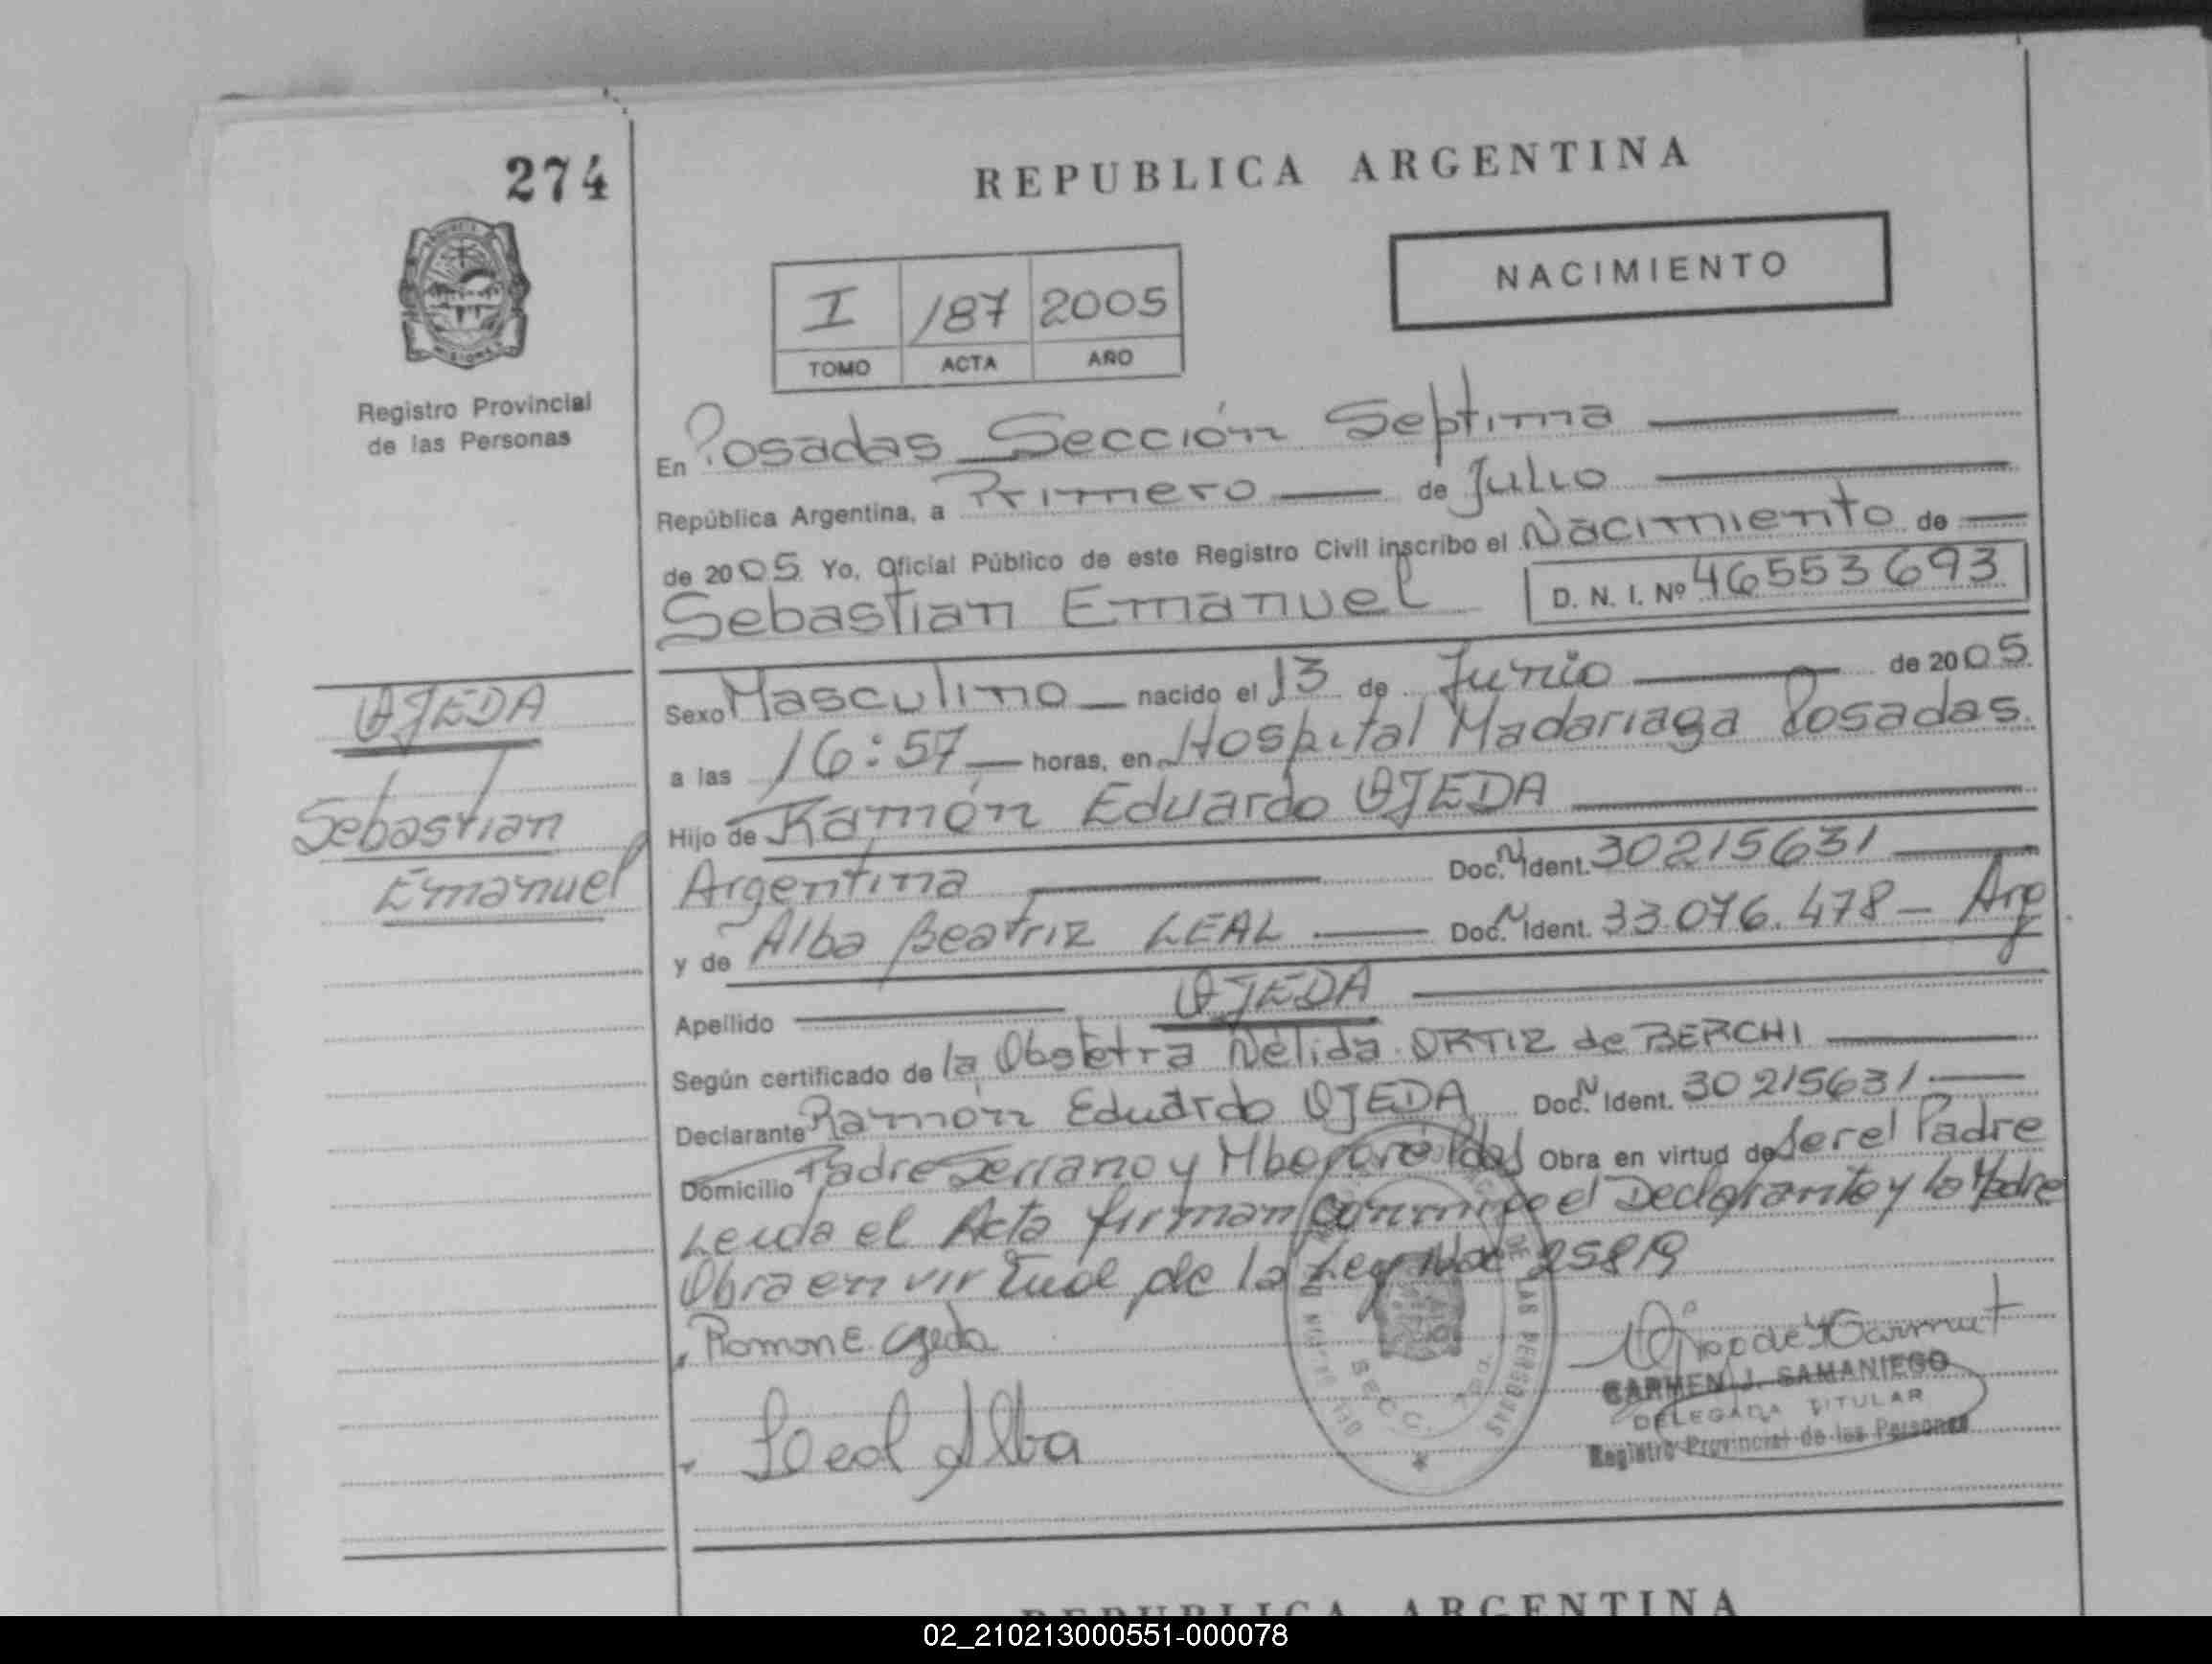 274
REPUBLICA ARGENTINA
NACIMIENTO
I 187 2005
TOMO ACTA AÑO
Registro Provincial
de las Personas
En Posadas Sección Septima
República Argentina, a Primero de Julio
de 2005 Yo, Oficial Público de este Registro Civil inscribo el Nacimiento de
Sebastian Emanuel D. N. I. Nº 46553693
OJEDA
Sebastian
Emanuel
Sexo Masculino nacido el 13 de Junio de 2005
a las 16:57 horas, en Hospital Madariaga Posadas.
Hijo de Ramón Eduardo OJEDA
Argentina Doc. N Ident. 30215631
y de Alba Beatriz LEAL Doc. N Ident. 33.076.478 - Arg
Apellido OJEDA
Según certificado de la Obstetra Nélida ORTIZ de BERCHI
Declarante Ramón Eduardo OJEDA Doc. N Ident. 30215631
Domicilio Padre Serrano y Mbororé Pdas Obra en virtud de Ser el Padre
Leuda el Acta firman conmigo el Declarante y la Madre
Obra en virtud de la Ley Nº 25819
Ramon E. Ojeda
Leal Alba
CARMEN J. SAMANIEGO
DELEGADA TITULAR
Registro Provincial de las Personas
DE LAS PERSONAS
SECC. 7
REPUBLICA ARGENTINA
02_210213000551-000078